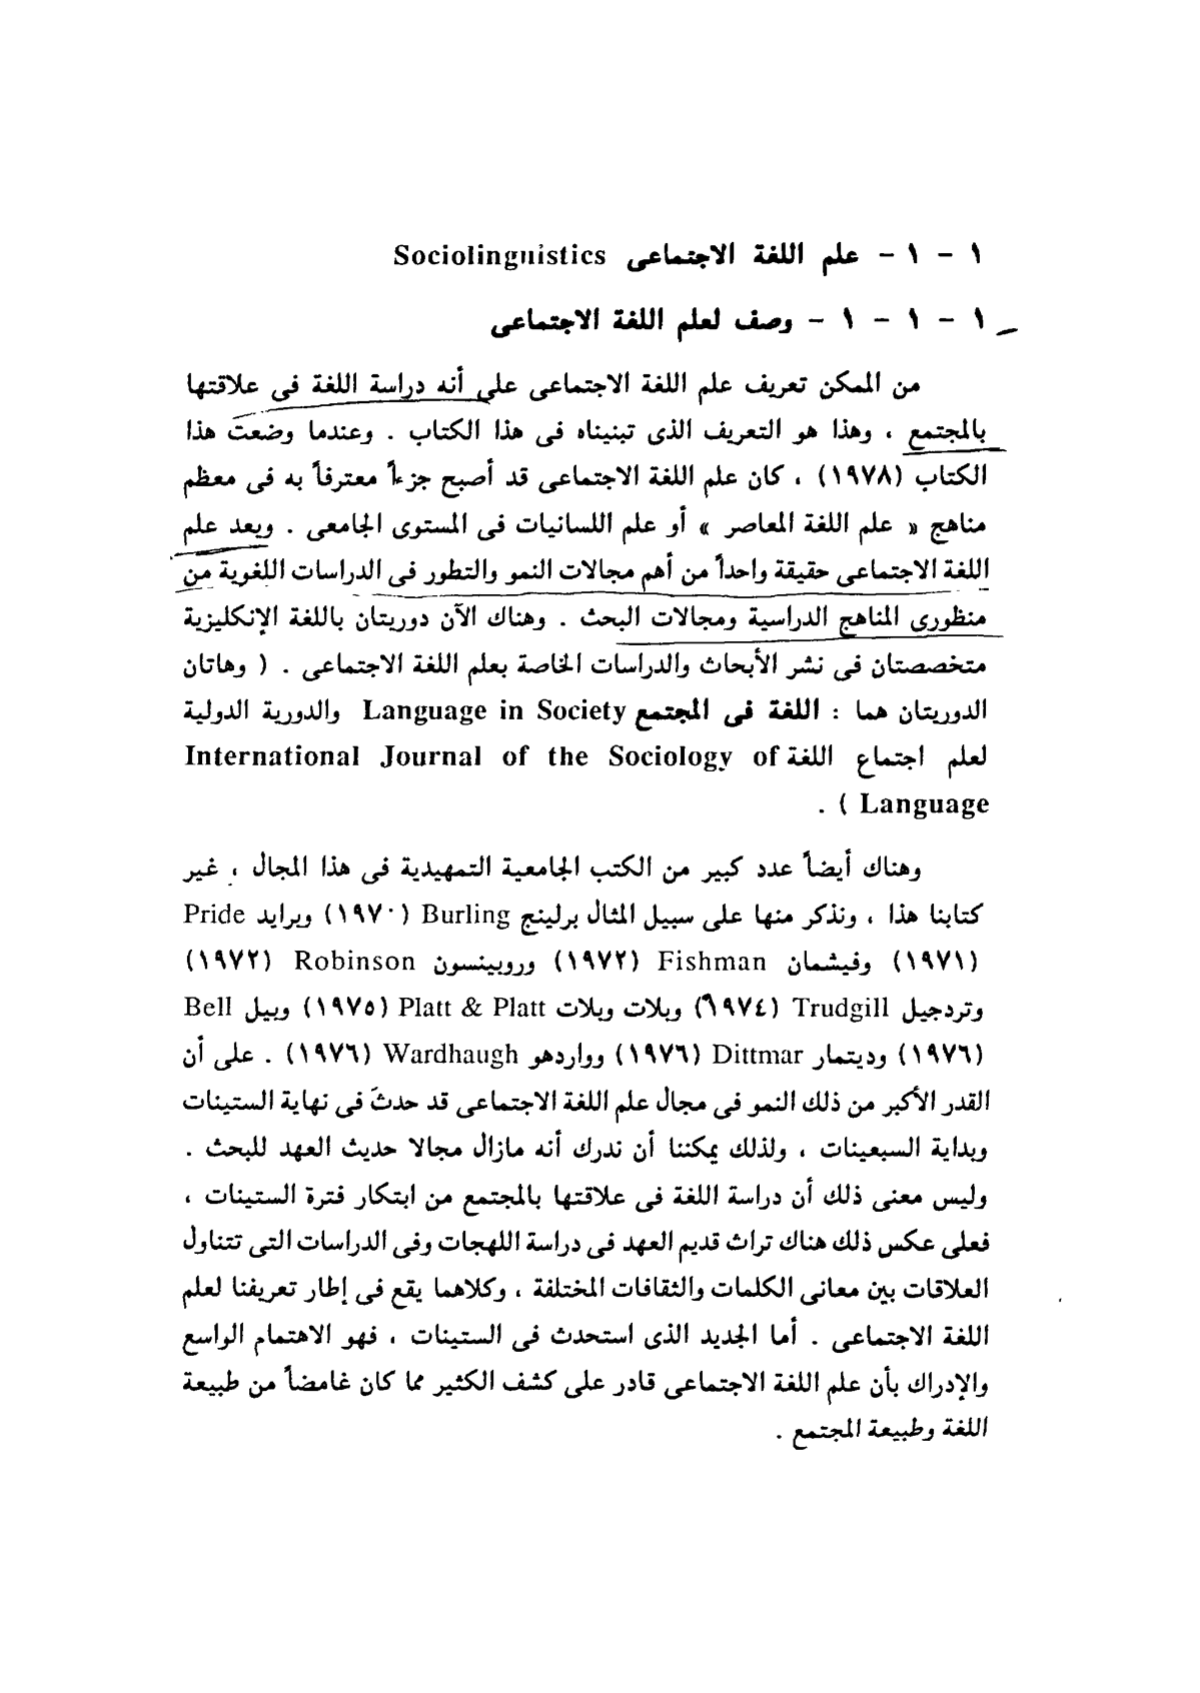 ١ - ١ - علم اللغة الاجتماعى Sociolinguistics
١ - ١ - ١ - وصف لعلم اللغة الاجتماعى
من الممكن تعريف علم اللغة الاجتماعى على أنه دراسة اللغة فى علاقتها
بالمجتمع ، وهذا هو التعريف الذى تبنيناه فى هذا الكتاب . وعندما وضعت هذا
الكتاب (١٩٧٨) ، كان علم اللغة الاجتماعى قد أصبح جزءاً معترفاً به فى معظم
مناهج « علم اللغة المعاصر » أو علم اللسانيات فى المستوى الجامعى . ويعد علم
اللغة الاجتماعى حقيقة واحداً من أهم مجالات النمو والتطور فى الدراسات اللغوية من
منظورى المناهج الدراسية ومجالات البحث . وهناك الآن دوريتان باللغة الإنكليزية
متخصصتان فى نشر الأبحاث والدراسات الخاصة بعلم اللغة الاجتماعى . ( وهاتان
الدوريتان هما : اللغة فى المجتمع Language in Society والدورية الدولية
لعلم اجتماع اللغة International Journal of the Sociology of
Language ) .
وهناك أيضاً عدد كبير من الكتب الجامعية التمهيدية فى هذا المجال ، غير
كتابنا هذا ، ونذكر منها على سبيل المثال برلينج Burling (١٩٧٠) وبرايد Pride
(١٩٧١) وفيشمان Fishman (١٩٧٢) وروبينسون Robinson (١٩٧٢)
وتردجيل Trudgill (١٩٧٤) وبلات وبلات Platt & Platt (١٩٧٥) وبيل Bell
(١٩٧٦) وديتمار Dittmar (١٩٧٦) وواردهو Wardhaugh (١٩٧٦) . على أن
القدر الأكبر من ذلك النمو فى مجال علم اللغة الاجتماعى قد حدثَ فى نهاية الستينات
وبداية السبعينات ، ولذلك يمكننا أن ندرك أنه مازال مجالا حديث العهد للبحث .
وليس معنى ذلك أن دراسة اللغة فى علاقتها بالمجتمع من ابتكار فترة الستينات ،
فعلى عكس ذلك هناك تراث قديم العهد فى دراسة اللهجات وفى الدراسات التى تتناول
العلاقات بين معانى الكلمات والثقافات المختلفة ، وكلاهما يقع فى إطار تعريفنا لعلم
اللغة الاجتماعى . أما الجديد الذى استحدث فى الستينات ، فهو الاهتمام الواسع
والإدراك بأن علم اللغة الاجتماعى قادر على كشف الكثير مما كان غامضاً من طبيعة
اللغة وطبيعة المجتمع .